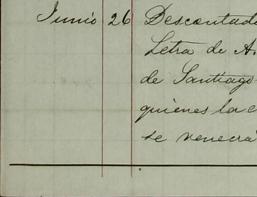 Junio 26 Descontado
Letra de A
de Santiago
quienes la
se vencrá